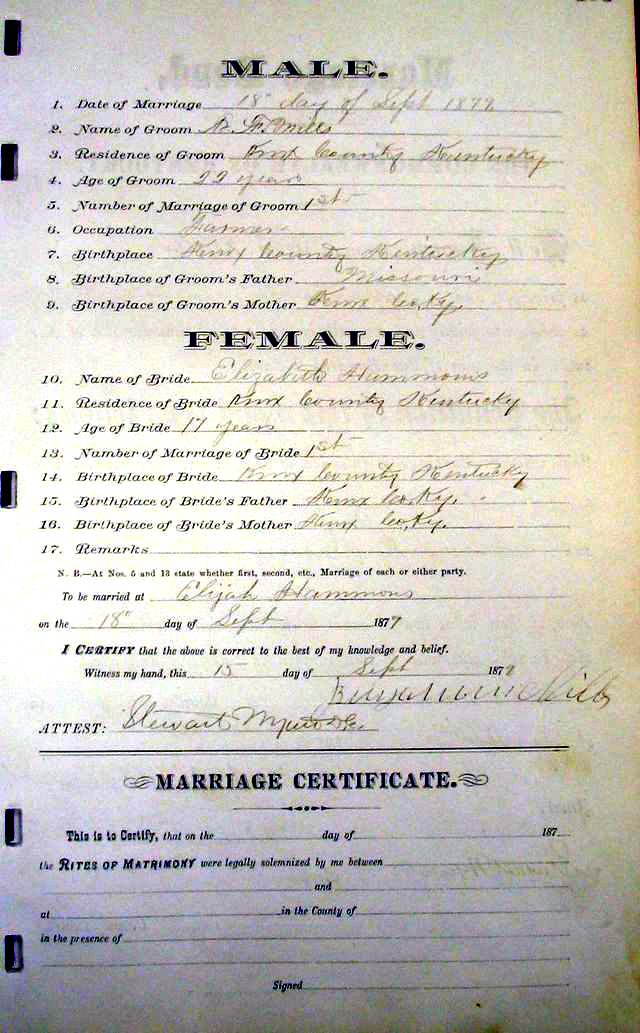 MALE.
1. Date of Marriage 18" day of Sept 1877
2. Name of Groom B. F. Mills
3. Residence of Groom Knox County Kentucky
4. Age of Groom 22 years
5. Number of Marriage of Groom 1st
6. Occupation Farmer
7. Birthplace Knox County Kentucky
8. Birthplace of Groom's Father Missouri
9. Birthplace of Groom's Mother Knox Co, Ky.
FEMALE.
10. Name of Bride Elizabeth Hammons
11. Residence of Bride Knox County Kentucky
12. Age of Bride 17 years
13. Number of Marriage of Bride 1st
14. Birthplace of Bride Knox County Kentucky
15. Birthplace of Bride's Father Knox Co, Ky.
16. Birthplace of Bride's Mother Knox Co, Ky.
17. Remarks
N. B.—At Nos. 5 and 13 state whether first, second, etc., Marriage of each or either party.
To be married at Elijah Hammons
on the 18" day of Sept 1877
I CERTIFY that the above is correct to the best of my knowledge and belief.
Witness my hand, this 15 day of Sept 1877
Benjamin Mills
ATTEST: Stewart
MARRIAGE CERTIFICATE.
This is to Certify, that on the day of 187
the RITES OF MATRIMONY were legally solemnized by me between
and
at in the County of
in the presence of
Signed